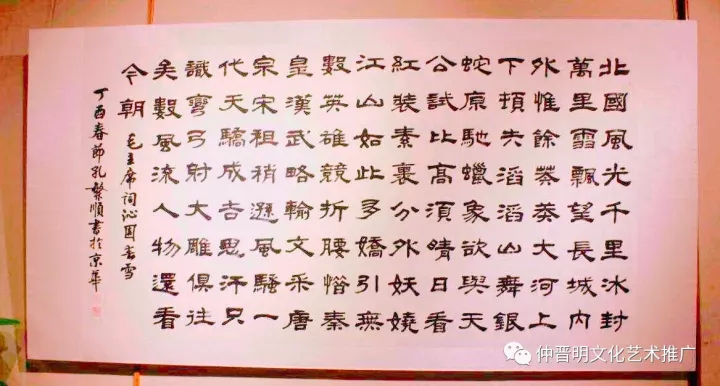 北國風光千里冰封
萬里雪飄望長城內
外惟餘莽莽大河上
下頓失滔滔山舞銀
蛇原馳蠟象欲與天
公試比高須晴日看
紅裝素裹分外妖嬈
江山如此多嬌引無
數英雄競折腰惜秦
皇漢武略輸文采唐
宗宋祖稍遜風騷一
代天驕成吉思汗只
識彎弓射大雕俱往
矣數風流人物還看
今朝 毛主席词沁园春雪
丁酉春節孔繁順書於京華
仲晋明文化艺术推广